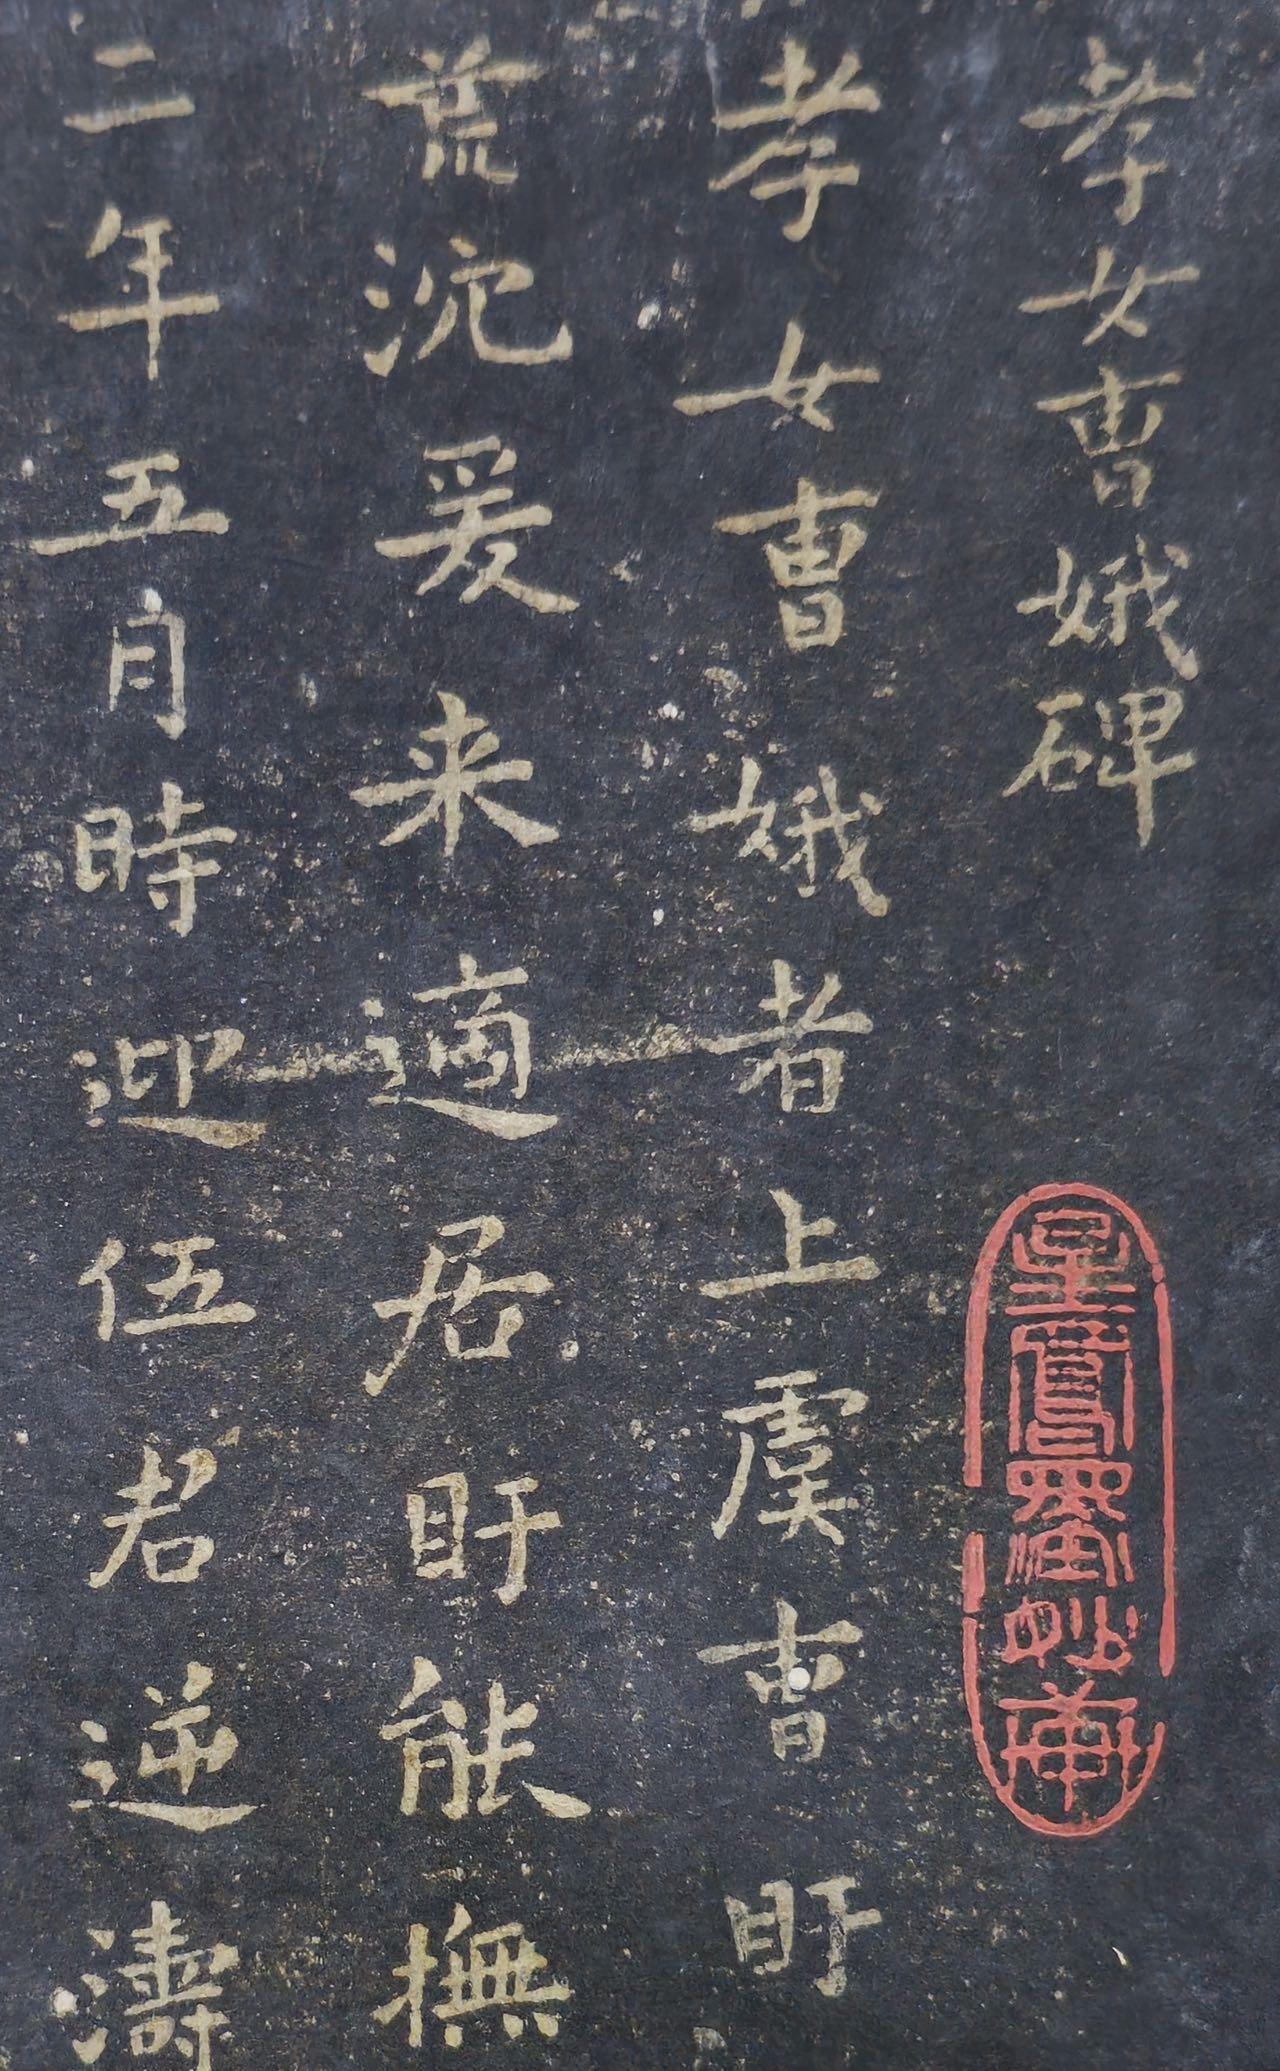 孝女曺娥碑
孝女曺娥者上虞曺盱
荒沉爰来適居盱能撫
二年五月時迎伍君逆濤